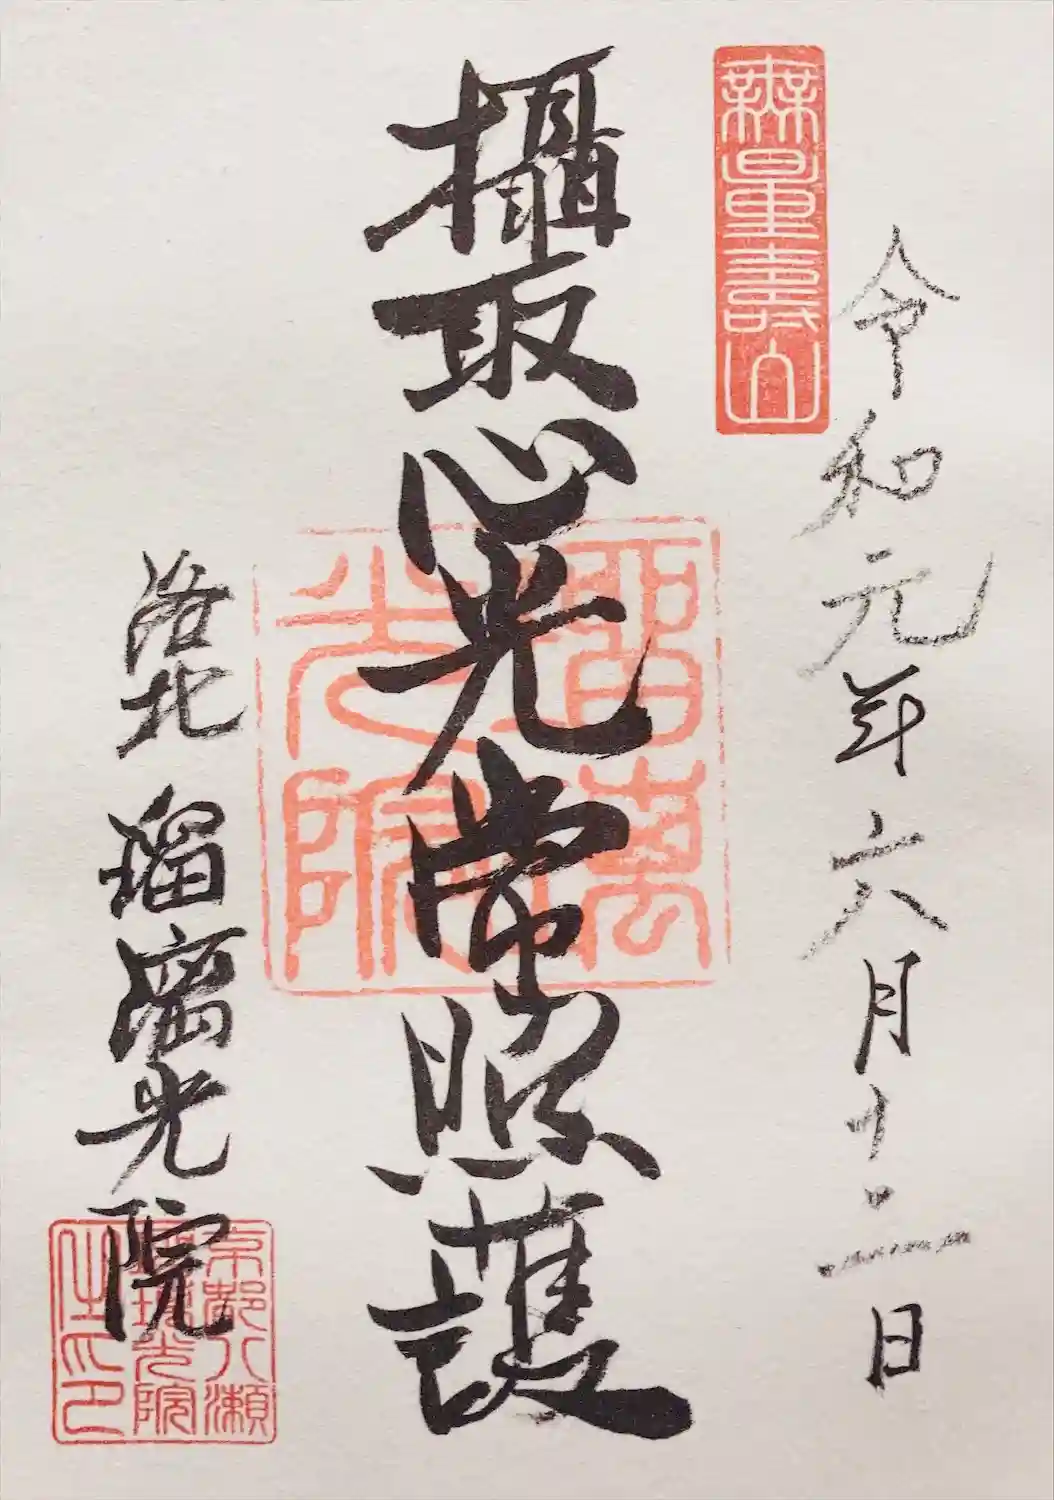 無量壽山
令和元年六月十二日
攝取心光常照護
洛北 瑠璃光院
光院
京都八瀬
瑠璃光院
之印